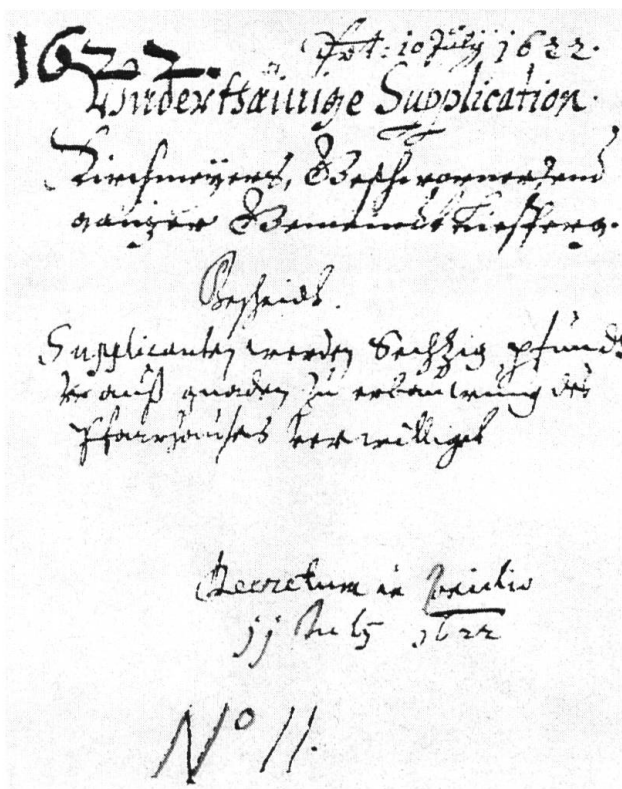 1622.
Prt: 10 July 1622.
Underthänige Supplication
Kirchmeyers, Geschwornen und
ganzer Gemeindt
Bescheidt.
Supplicanten werden Sechzig pfundt
auß gnaden zu erbauwung des
Pfarrhauses verwilliget
Decretum in Consilio
jj July 1622
No 11.